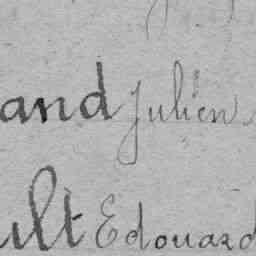 and Julien
ult Edouard